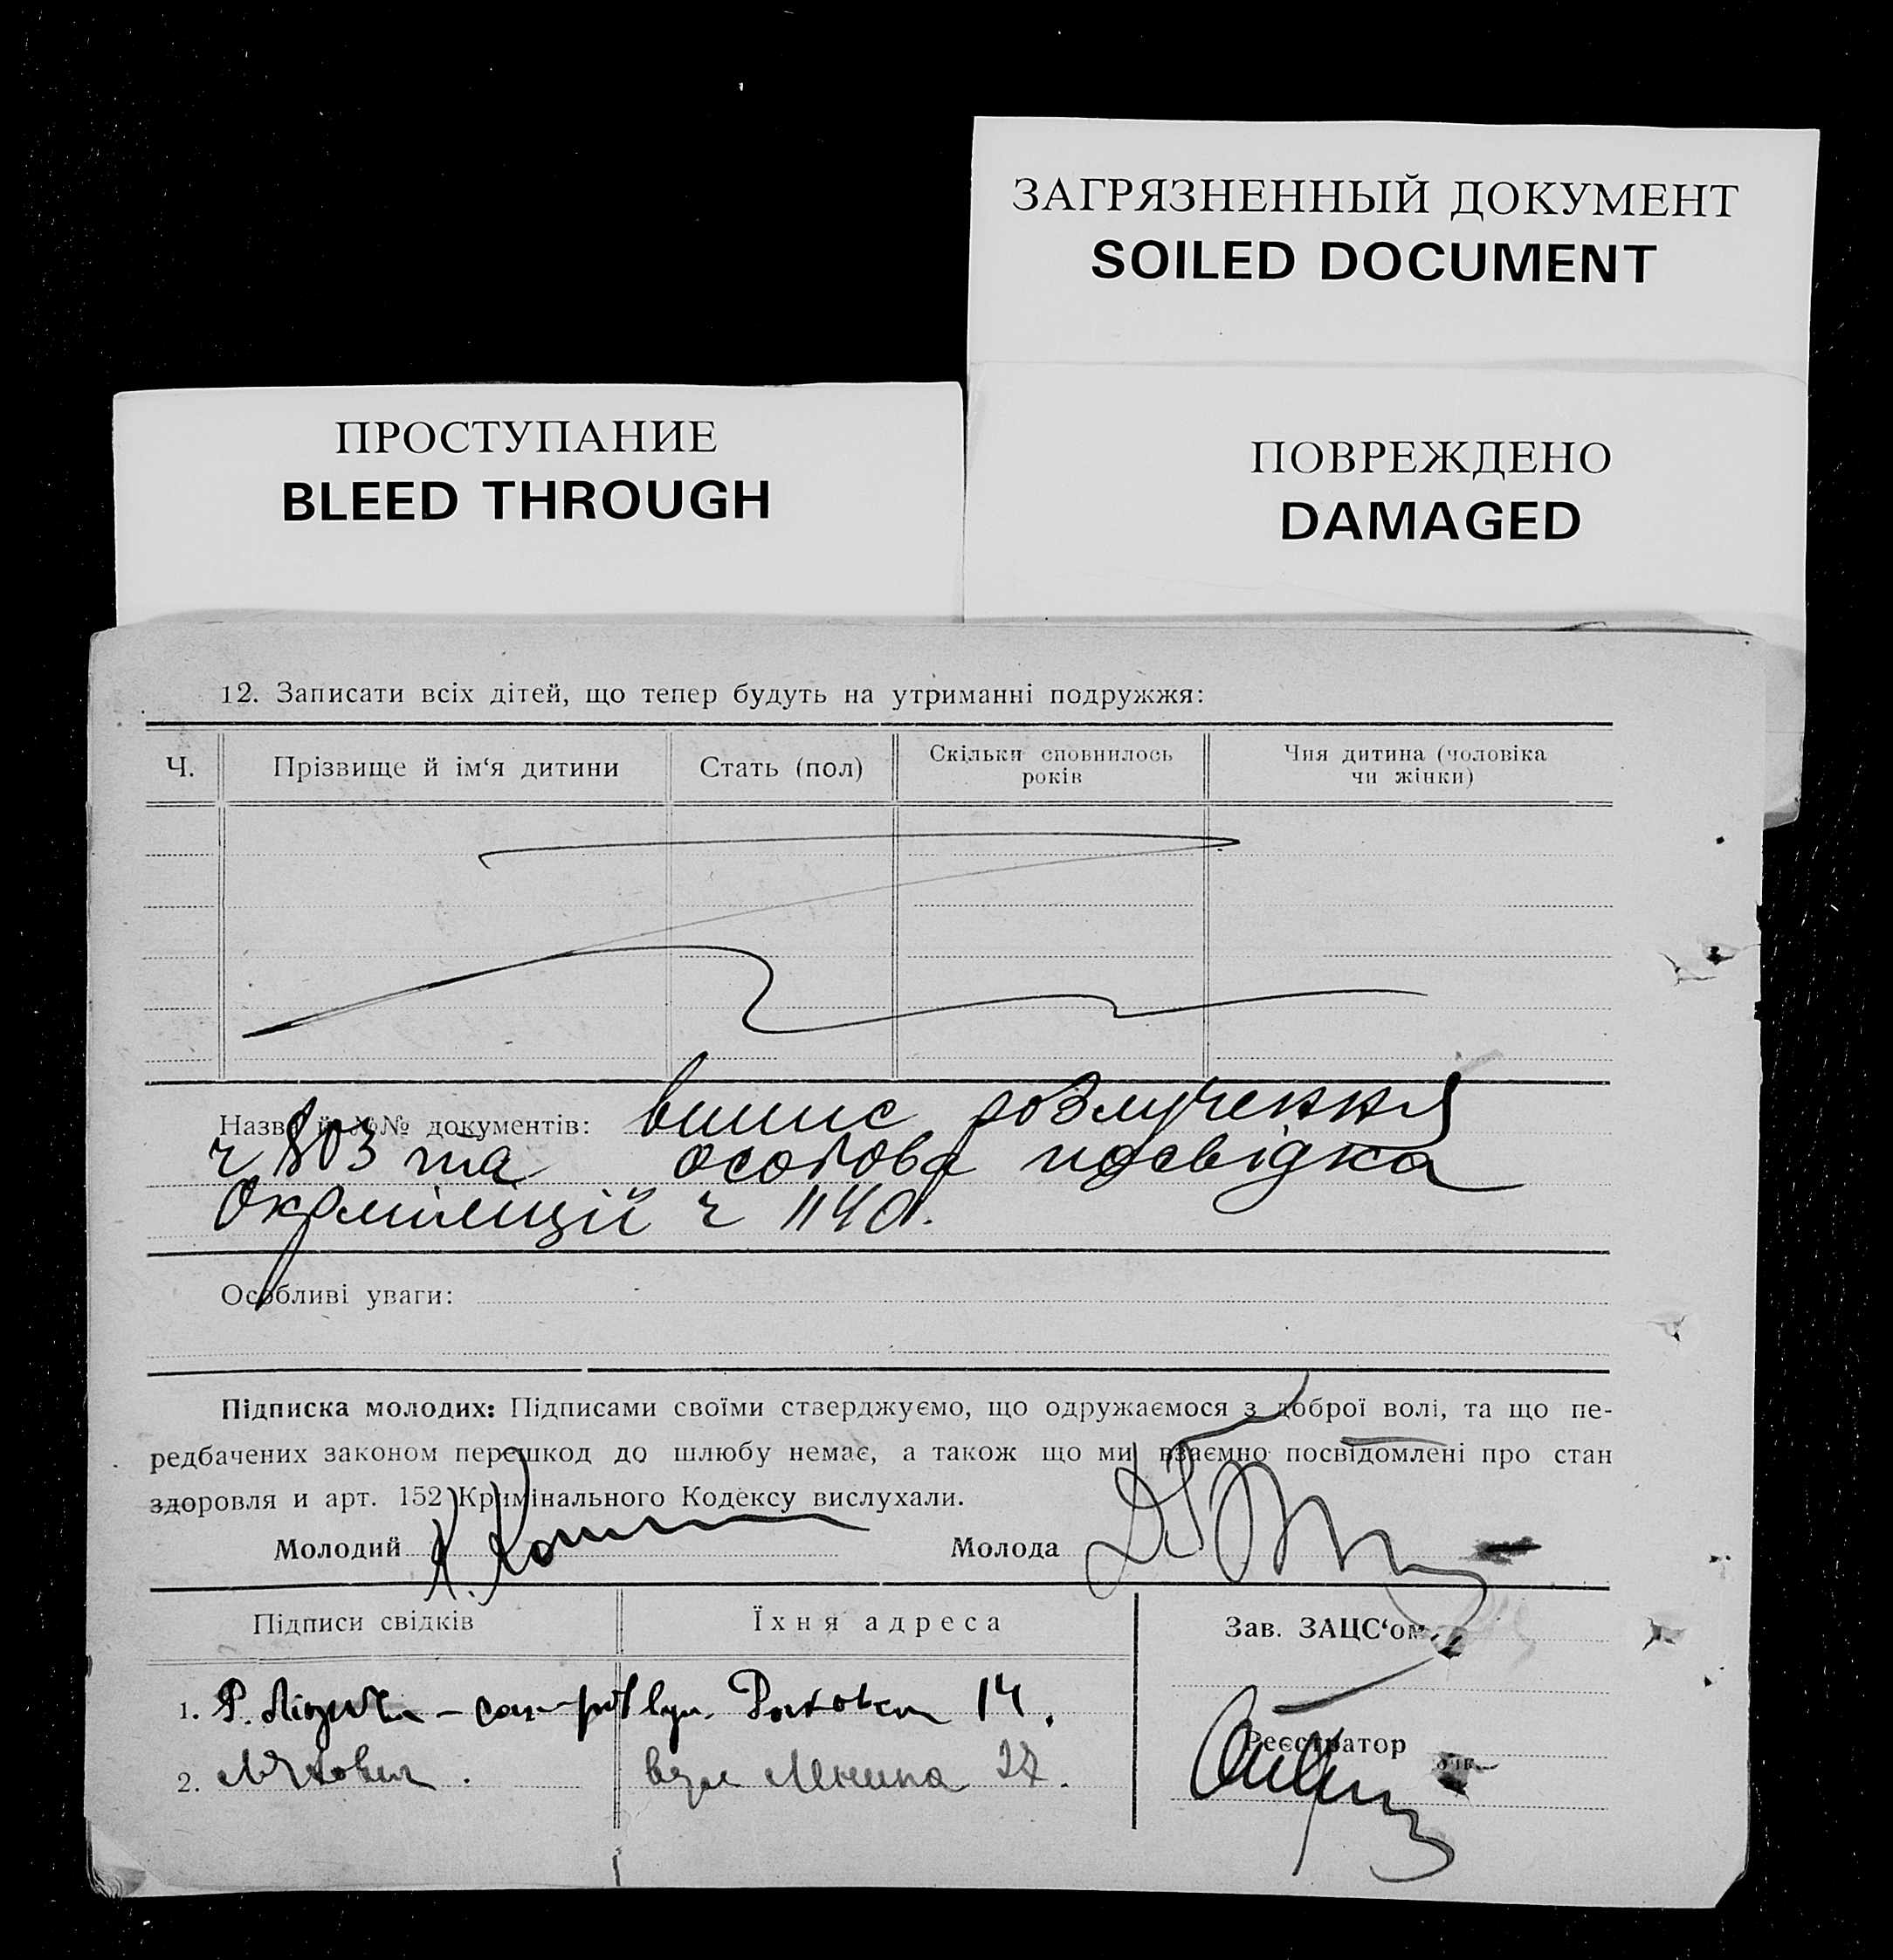 ЗАГРЯЗНЕННЫЙ ДОКУМЕНТ
SOILED DOCUMENT
ПРОСТУПАНИЕ
BLEED THROUGH
ПОВРЕЖДЕНО
DAMAGED
12. Записати всіх дітей, що тепер будуть на утриманні подружжя:
Ч. Прізвище й ім‘я дитини Стать (пол) Скільки сповнилось років Чия дитина (чоловіка чи жінки)
Назва й №№ документів: випис розлучення
ч 803 та особова посвідка
Окрміліції ч 1140.
Особливі уваги:
Підписка молодих: Підписами своїми стверджуємо, що одружаємося з доброї волі, та що пе-
редбачених законом перешкод до шлюбу немає, а також що ми взаємно посвідомлені про стан
здоровля и арт. 152 Кримінального Кодексу вислухали.
Молодий Молода
Підписи свідків Їхня адреса Зав. ЗАЦС‘ом
1. Р. вул. 14.
Реєстратор
2. вул Леніна 27.